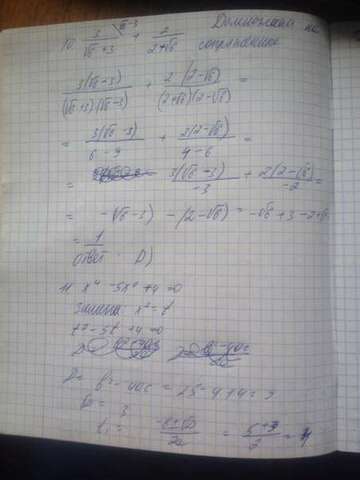 10 3/(√6+3) \√6-3 + 2/(2+√6) Домножаем на
сопряженное
3(√6-3)/((√6+3)(√6-3)) + 2(2-√6)/((2+√6)(2-√6)) =
= 3(√6-3)/(6-9) + 2(2-√6)/(4-6) =
= 3(√6-3)/-3 + 2(2-√6)/-2 =
= -(√6-3) - (2-√6) = -√6+3-2+√6
= 1
Ответ: D)
11 x⁴-5x²+4=0
Замена: x²=t
t²-5t+4=0
D= b²-4ac = 25-4·1·4=9
√D= 3
t₁ = (-b±√D)/2a = (5+3)/2 = 4